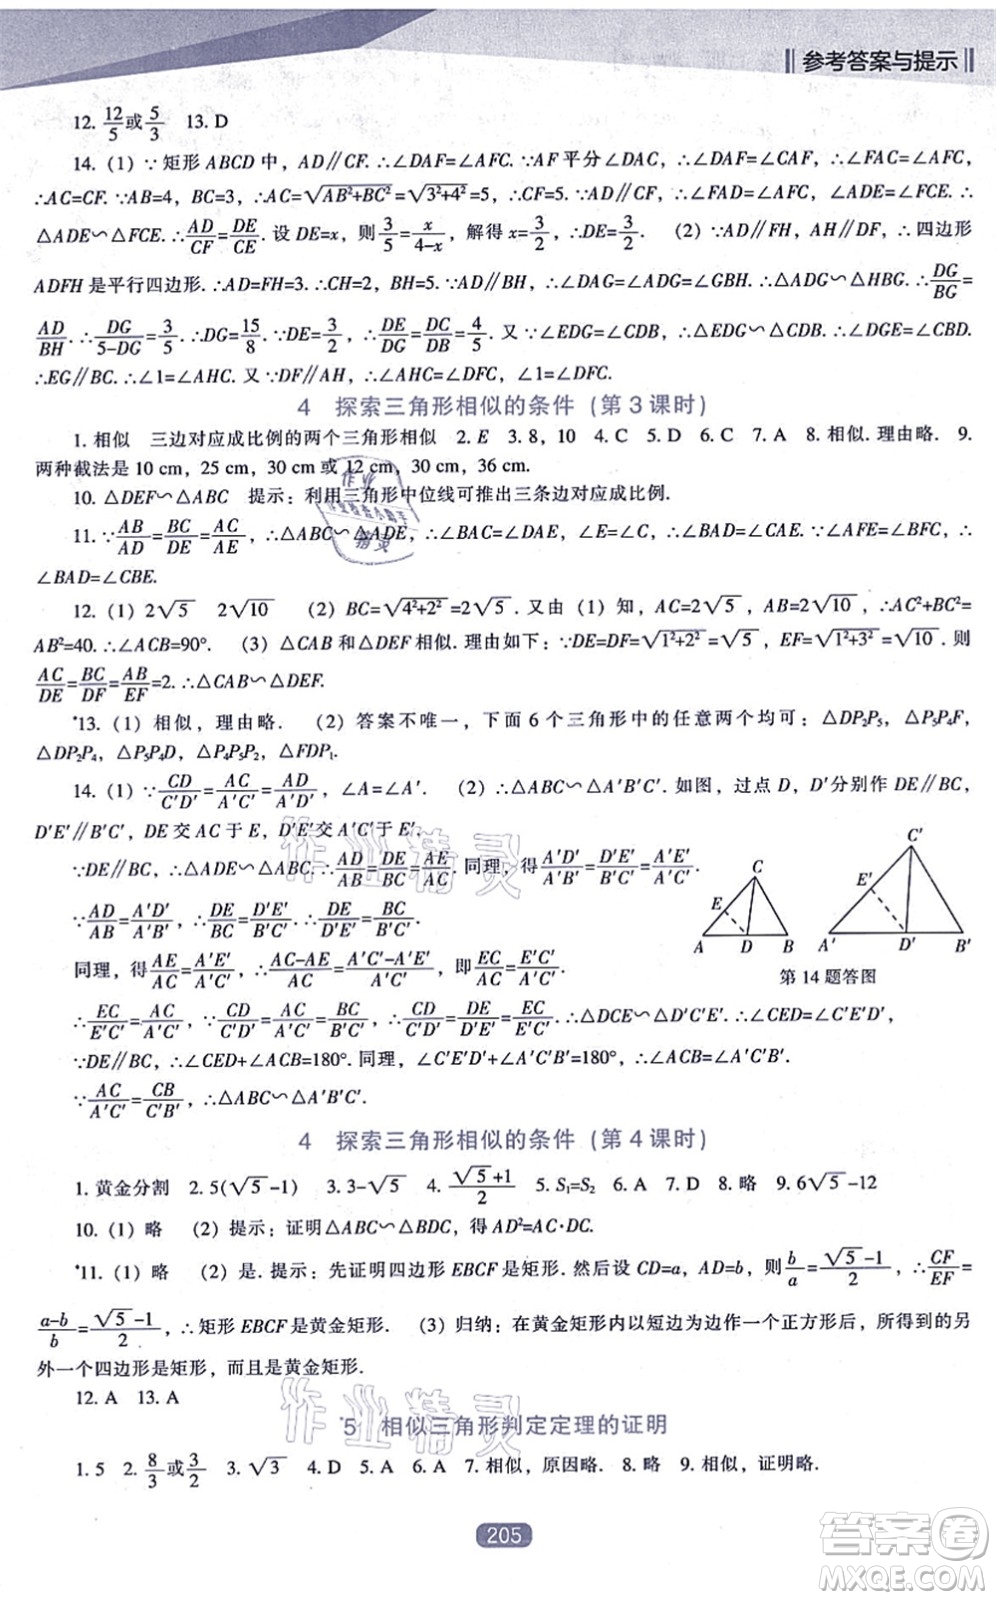 参考答案与提示
12. 12/5或5/3 13. D
14. (1) ∵矩形ABCD中，AD∥CF. ∴∠DAF=∠AFC. ∵AF平分∠DAC，∴∠DAF=∠CAF，∴∠FAC=∠AFC，
∴AC=CF. ∵AB=4，BC=3，∴AC=√(AB²+BC²)=√(3²+4²)=5，∴CF=5. ∵AD∥CF，∴∠FAD=∠AFC，∠ADE=∠FCE. ∴
△ADE∽△FCE. ∴AD/CF=DE/CE. 设DE=x，则3/5=x/(4-x)，解得x=3/2，∴DE=3/2. (2) ∵AD∥FH，AH∥DF，∴四边形
ADFH是平行四边形. ∴AD=FH=3. ∴CH=2，BH=5. ∵AD∥BH，∴∠DAG=∠ADG=∠GBH. ∴△ADG∽△HBG. ∴DG/BG=
AD/BH. ∴DG/(5-DG)=3/5. ∴DG=15/8. ∵DE=3/2，∴DE/DG=DC/DB=4/5. 又∵∠EDG=∠CDB，∴△EDG∽△CDB，∴∠DGE=∠CBD.
∴EG∥BC. ∴∠1=∠AHC. 又∵DF∥AH，∴∠AHC=∠DFC，∠1=∠DFC.
4 探索三角形相似的条件（第3课时）
1. 相似 三边对应成比例的两个三角形相似 2. E 3. 8，10 4. C 5. D 6. C 7. A 8. 相似. 理由略. 9.
两种截法是10 cm，25 cm，30 cm或12 cm，30 cm，36 cm.
10. △DEF∽△ABC 提示：利用三角形中位线可推出三条边对应成比例.
11. ∵AB/AD=BC/DE=AC/AE，∴△ABC∽△ADE，∴∠BAC=∠DAE，∠E=∠C，∴∠BAD=∠CAE. ∵∠AFE=∠BFC，∴
∠BAD=∠CBE.
12. (1) 2√5 2√10 (2) BC=√(4²+2²)=2√5. 又由(1)知，AC=2√5，AB=2√10，∴AC²+BC²=
AB²=40. ∴∠ACB=90°. (3) △CAB和△DEF相似. 理由如下：∵DE=DF=√(1²+2²)=√5，EF=√(1²+3²)=√10. 则
AC/DE=BC/DF=AB/EF=2. ∴△CAB∽△DEF.
*13. (1) 相似，理由略. (2) 答案不唯一，下面6个三角形中的任意两个均可：△DP₂P₅，△P₅P₄F，
△DP₂P₄，△P₅P₄D，△P₄P₅P₂，△FDP₁.
14. (1) ∵CD/C′D′=AC/A′C′=AD/A′D′，∠A=∠A′. (2) ∴△ABC∽△A′B′C′. 如图，过点D，D′分别作DE∥BC，
D′E′∥B′C′，DE交AC于E，D′E′交A′C′于E′.
∵DE∥BC，∴△ADE∽△ABC. ∴AD/AB=DE/BC=AE/AC. 同理，得A′D′/A′B′=D′E′/B′C′=A′E′/A′C′.
∵AD/AB=A′D′/A′B′，∴DE/BC=D′E′/B′C′. ∴DE/D′E′=BC/B′C′.
同理，得AE/AC=A′E′/A′C′，∴(AC-AE)/AC=(A′C′-A′E′)/A′C′，即EC/AC=E′C′/A′C′.
∴EC/E′C′=AC/A′C′，∵CD/C′D′=AC/A′C′=BC/B′C′，∴CD/C′D′=DE/D′E′=EC/E′C′. ∴△DCE∽△D′C′E′. ∴∠CED=∠C′E′D′，
∵DE∥BC，∴∠CED+∠ACB=180°. 同理，∠C′E′D′+∠A′C′B′=180°，∴∠ACB=∠A′C′B′.
∵AC/A′C′=CB/C′B′，∴△ABC∽△A′B′C′.
C E A D B C′ E′ A′ D′ B′
第14题答图
4 探索三角形相似的条件（第4课时）
1. 黄金分割 2. 5(√5-1) 3. 3-√5 4. (√5+1)/2 5. S₁=S₂ 6. A 7. D 8. 略 9. 6√5-12
10. (1) 略 (2) 提示：证明△ABC∽△BDC，得AD²=AC·DC.
*11. (1) 略 (2) 是. 提示：先证明四边形EBCF是矩形. 然后设CD=a，AD=b，则b/a=(√5-1)/2，∴CF/EF=
(a-b)/b=(√5-1)/2，∴矩形EBCF是黄金矩形. (3) 归纳：在黄金矩形内以短边为边作一个正方形后，所得到的另
外一个四边形是矩形，而且是黄金矩形.
12. A 13. A
*5 相似三角形判定定理的证明
1. 5 2. 8/3或3/2 3. √3 4. D 5. A 6. A 7. 相似，原因略. 8. 略 9. 相似，证明略.
205
作业精灵
作业精灵
答案卷
MXQE.COM